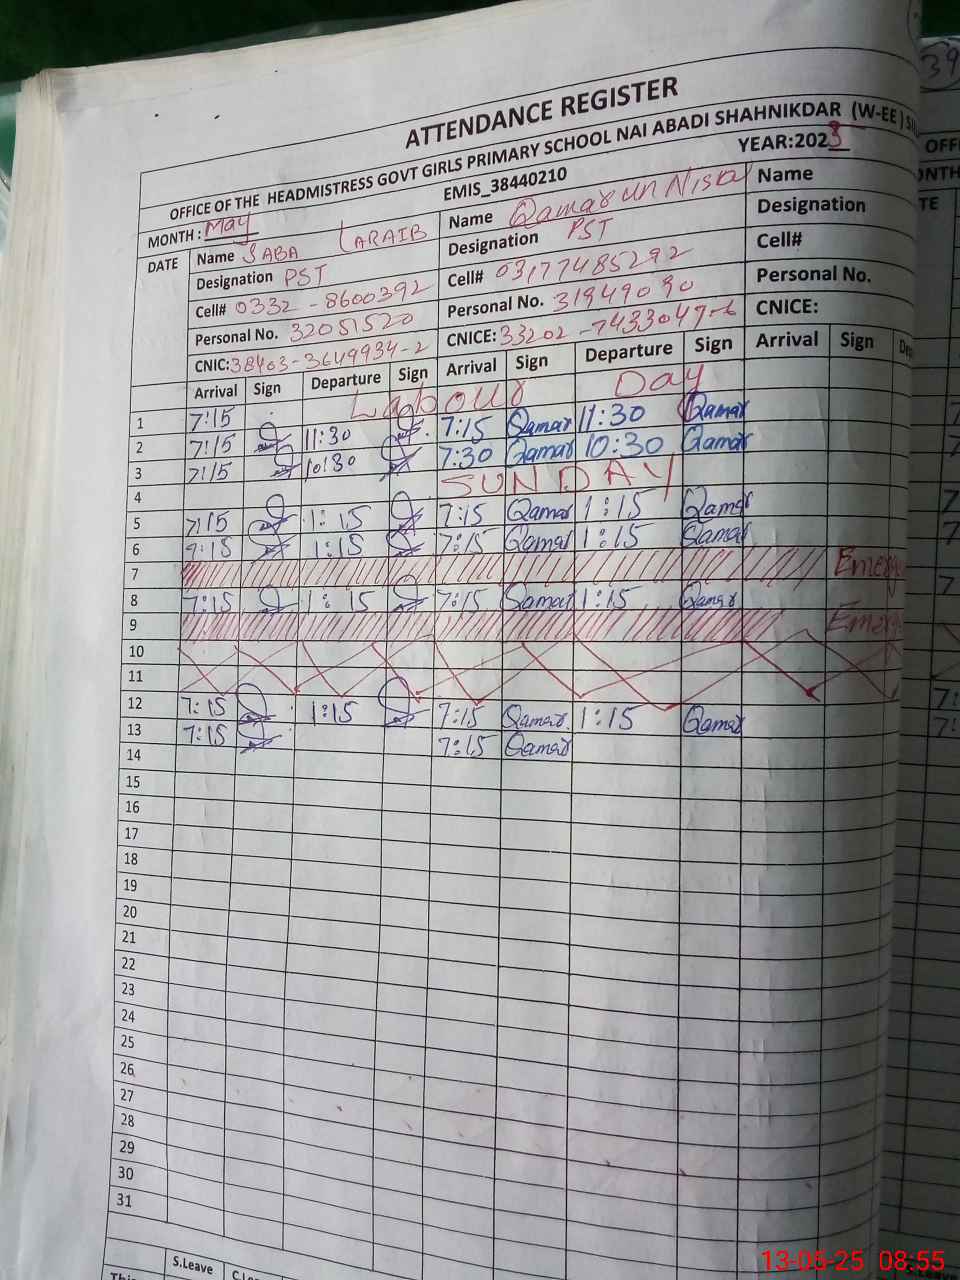 39
ATTENDANCE REGISTER
OFFICE OF THE HEADMISTRESS GOVT GIRLS PRIMARY SCHOOL NAI ABADI SHAHNIKDAR (W-EE)
EMIS_38440210 YEAR:202
MONTH: May
DATE Name SABA LARAIB Name Qamar un Nisa Name
Designation PST Designation PST Designation
Cell# 0332-8600392 Cell# 03177485292 Cell#
Personal No. 32051520 Personal No. 31949090 Personal No.
CNIC: 38403-3649934-2 CNICE: 33202-7433047-6 CNICE:
Arrival Sign Departure Sign Arrival Sign Departure Sign Arrival Sign
Labour Day
1 7:15
2 7:15 11:30 7:15 Qamar 11:30 Qamar
3 7:15 10:30 7:30 Qamar 10:30 Qamar
4 SUNDAY
5 7:15 1:15 7:15 Qamar 1:15 Qamar
6 7:15 1:15 7:15 Qamar 1:15 Qamar
7
8 7:15 1:15 7:15 Qamar 1:15 Qamar
9
10
11
12 7:15 1:15 7:15 Qamar 1:15 Qamar
13 7:15 7:15 Qamar
14
15
16
17
18
19
20
21
22
23
24
25
26
27
28
29
30
31
S.Leave
13-05-25 08:55